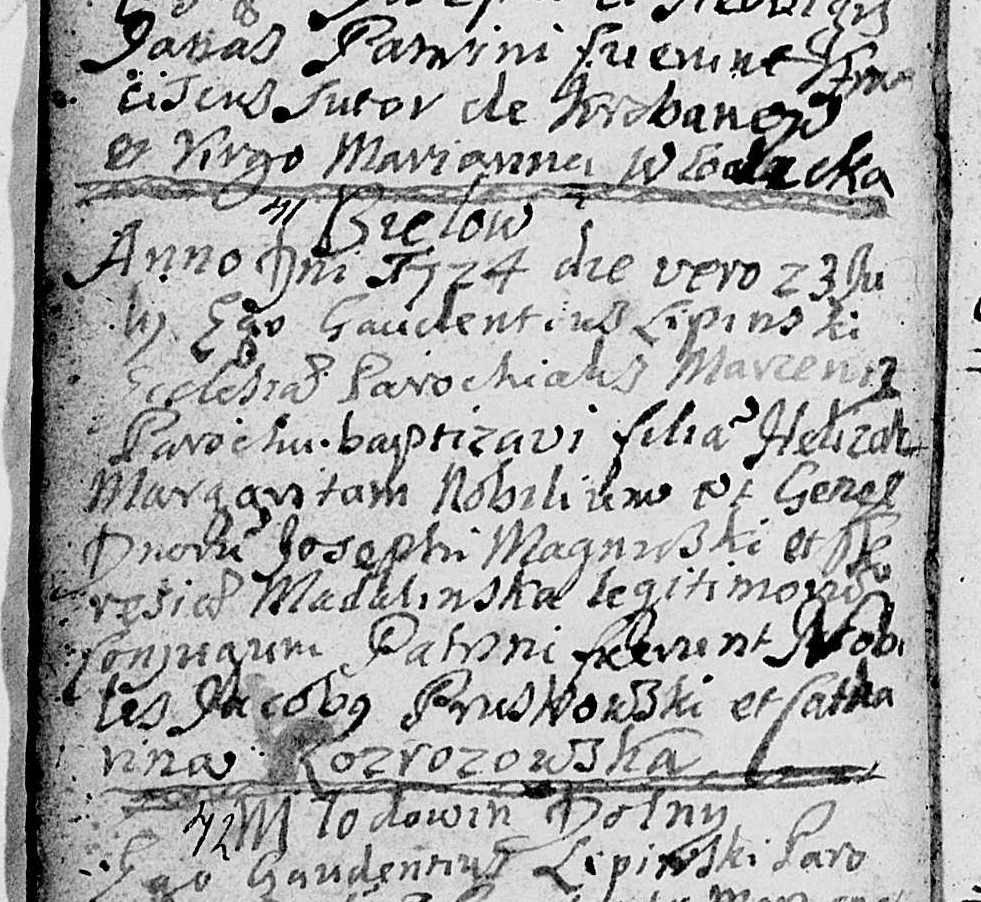 Janas Patrini fuerunt
ciscus Sutor de Grabanow
et Virgo Marianna Wlodacka
41 Bielow
Anno Dni 1724 die vero 23 Ju
lij Ego Gaudentius Lipinski
Ecclesiae Parochialis Marzenin
Parochu. baptizavi filiã
Margaritam Nobilium et Gener
Dnorũ Josephi Magnuski et The
resiae Madalinska legitimorũ
Conjugum Patrini fuerunt Nobi
les Jacobq Pruskowski et Catha
rina Rozrozowska
42 Mlodowin Dolny
Ego Gaudentius Lipinski Paro